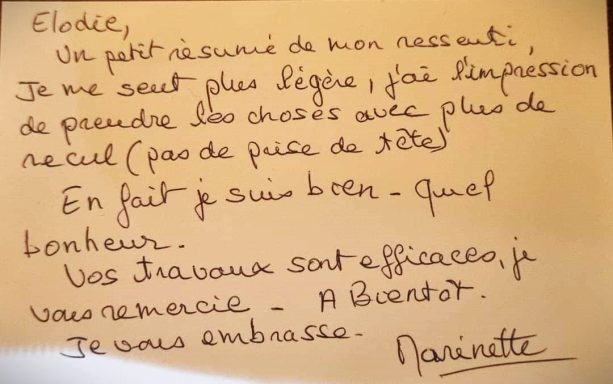 Elodie,
Un petit résumé de mon ressenti,
Je me sent plus légère, j'ai l'impression
de prendre les choses avec plus de
recul (pas de prise de tête)
En fait je suis bien - quel
bonheur.
Vos travaux sont efficaces, je
vous remercie - A Bientot.
Je vous embrasse -
Marinette